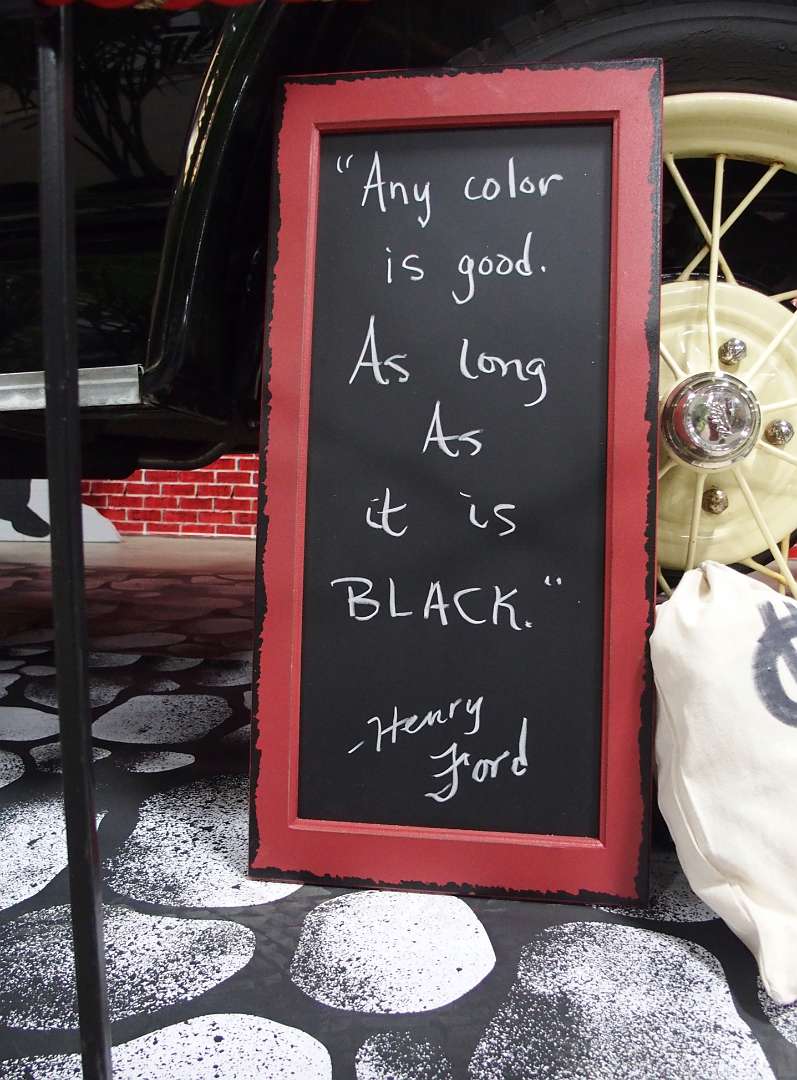 "Any color
is good.
As long
As
it is
BLACK."
-Henry
Ford